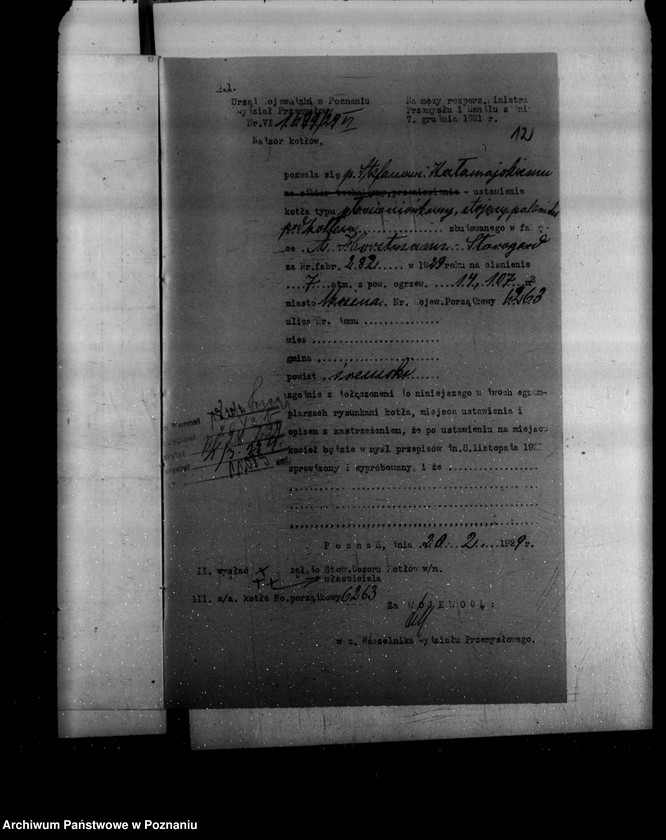 Urząd Wojewódzki w Poznaniu
Wydział Przemysłowy
Nr.VI.
Nadzór kotłów.
Na mocy rozporz. Ministra
Przemysłu i Handlu z dnia
7. grudnia 1921 r.
12
pozwala się p. Stefanowi
na odbiór techniczny, przeniesienie - ustawienie
kotła typu płomieniówkowy, stojący
pod kotłem zbudowanego w fabry-
ce A. Horstmann - Starogard
za Nr.fabr. 282 w 1929 roku na ciśnienie
7 atm. z pow. ogrzew. 14,107 m2
miasto Nr. Wojew.Porządkowy 6263
ulica Nr. domu
wieś
gmina
powiat śremski
zgodnie z dołączonemi do niniejszego w dwóch egzem-
plarzach rysunkami kotła, miejsca ustawienia i
opisem z zastrzeżeniem, że po ustawieniu na miejscu
kocioł będzie w myśl przepisów dn.8.listopada 192
sprawdzony i wypróbowany, i że
Poznań, dnia 20. 2. 1929 r.
II. wysłać zał. do Stow.Dozoru Kotłów w/m.
właściciela
III. a/a. kotła No.porządkowy 6263
Za WOJEWODĘ:
w z. Naczelnika Wydziału Przemysłowego.
Archiwum Państwowe w Poznaniu